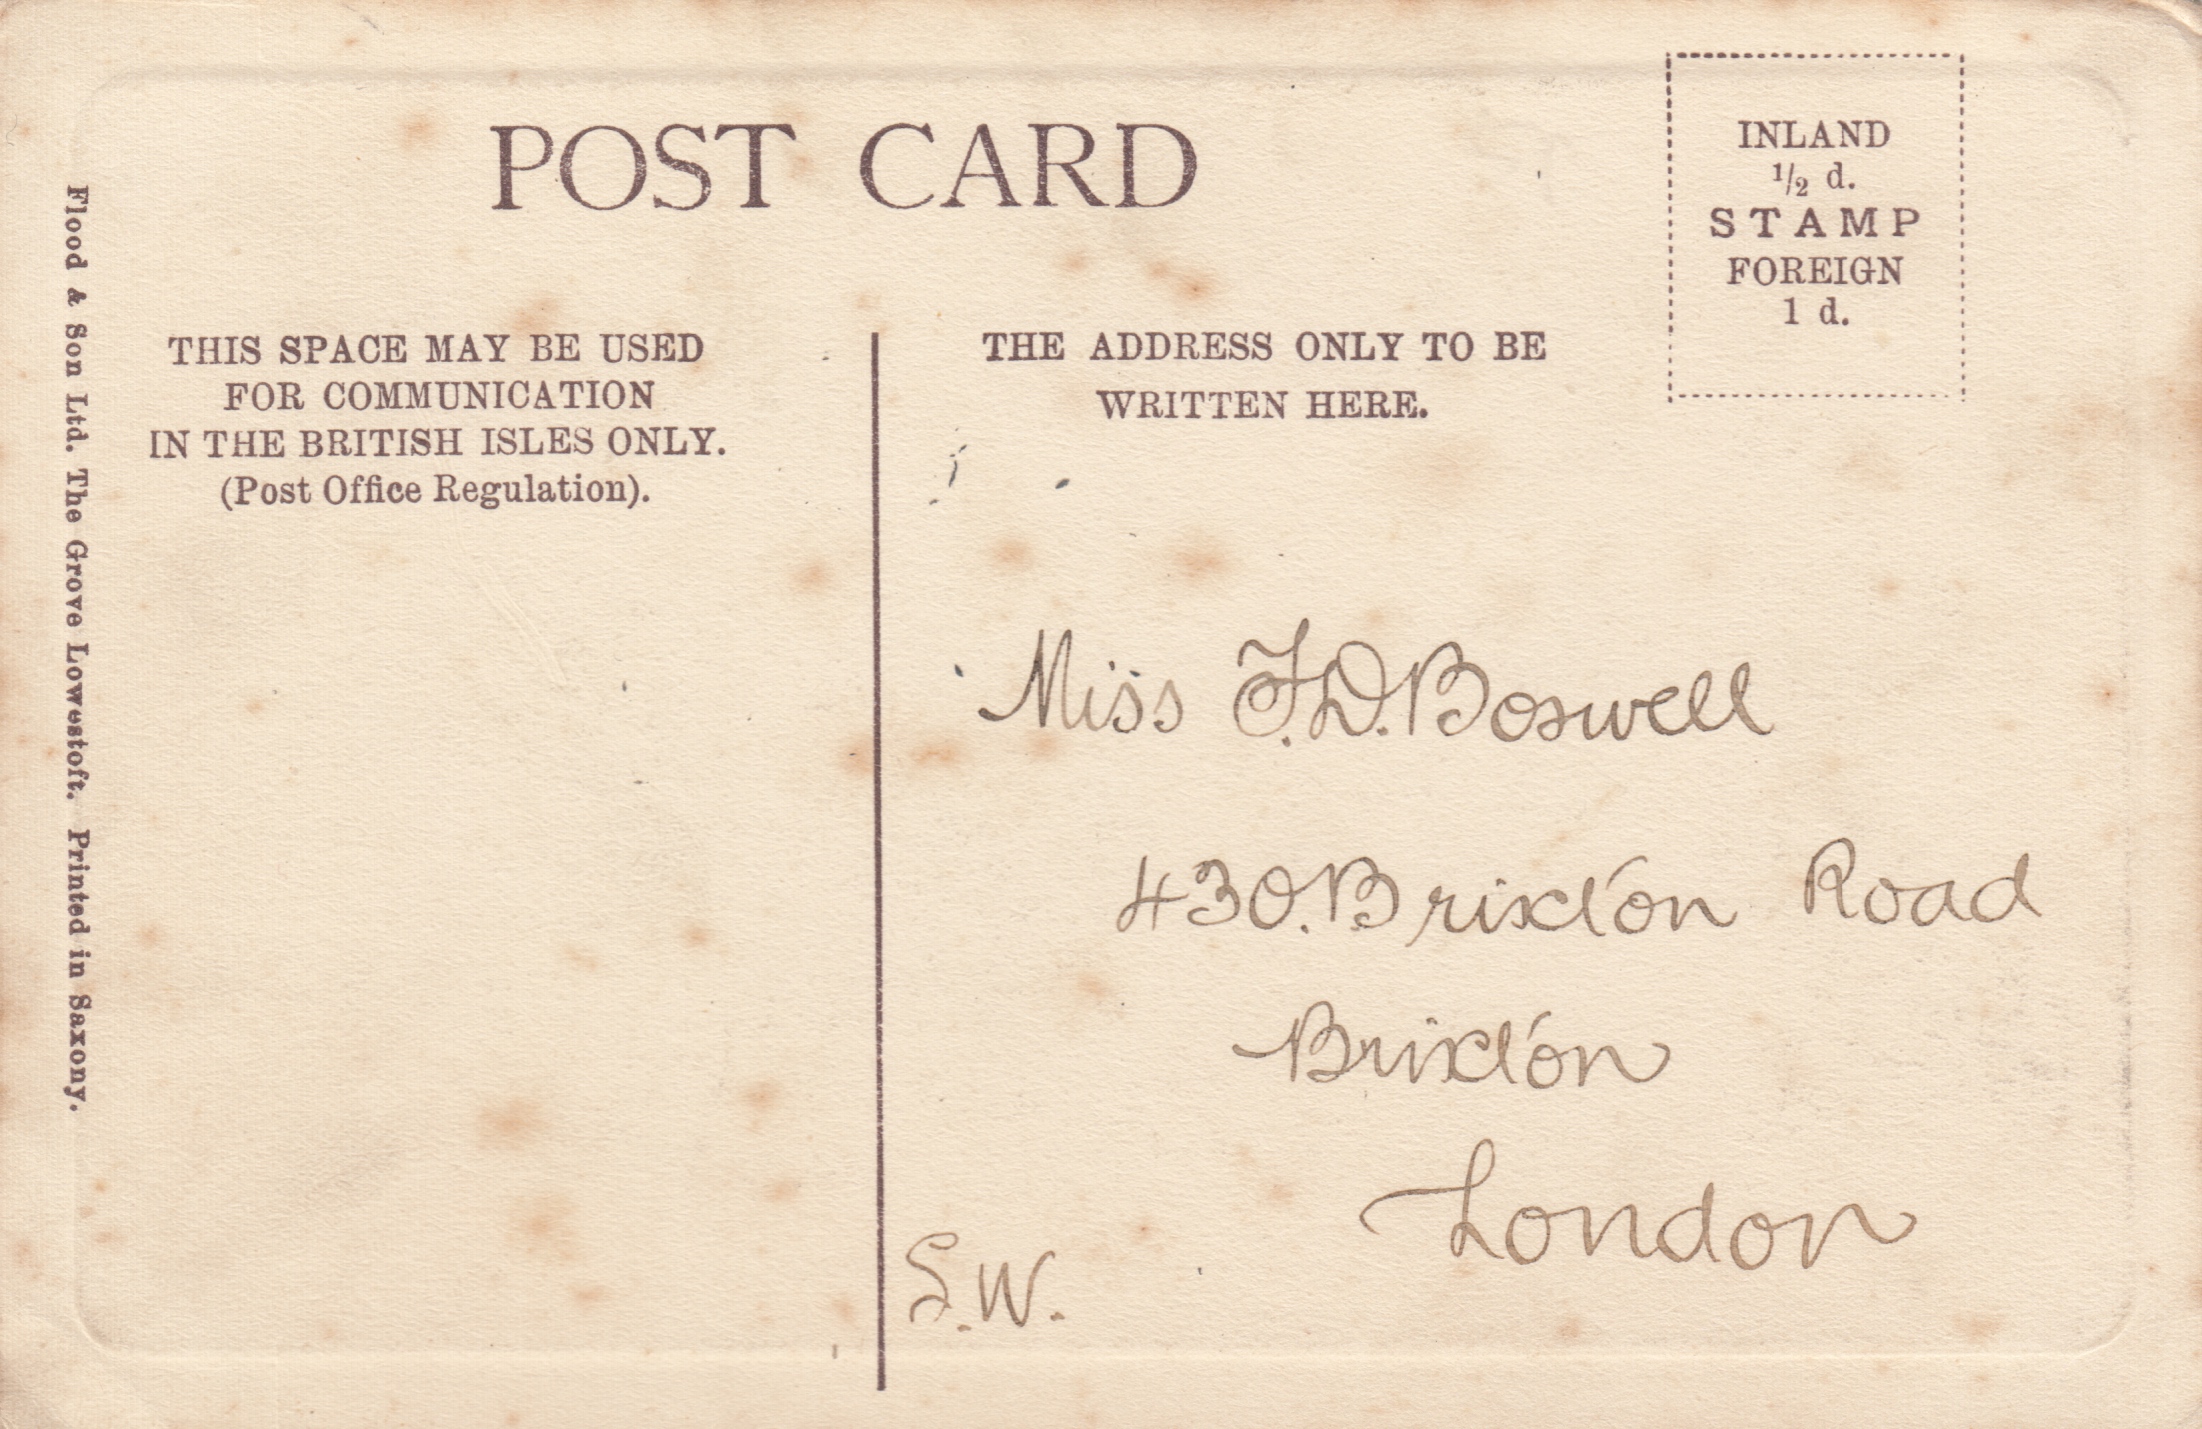 POST CARD
INLAND
1/2 d.
STAMP
FOREIGN
1 d.
THIS SPACE MAY BE USED
FOR COMMUNICATION
IN THE BRITISH ISLES ONLY.
(Post Office Regulation).
THE ADDRESS ONLY TO BE
WRITTEN HERE.
Miss F.D. Boswell
430. Brixton Road
Brixton
London
S.W.
Flood & Son Ltd. The Grove Lowestoft. Printed in Saxony.